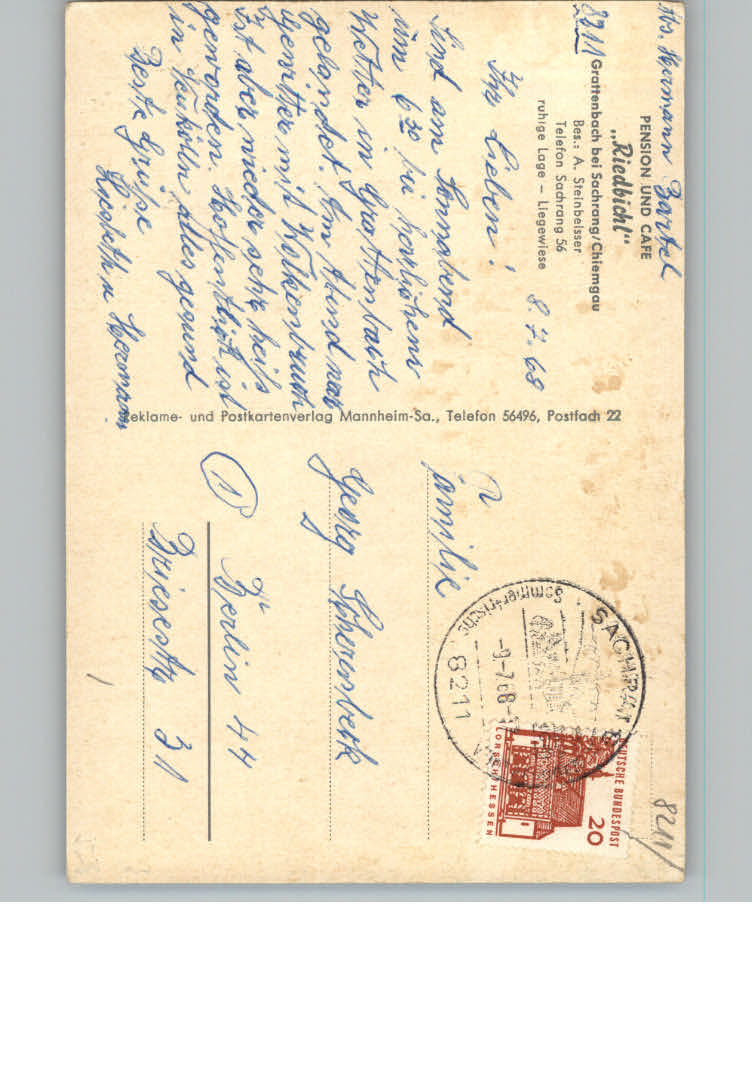 Abs. Hermann Bartel
PENSION UND CAFE
„Riedbichl"
8211 Grattenbach bei Sachrang/Chiemgau
Bes.: A. Steinbeisser
Telefon Sachrang 56
ruhige Lage – Liegewiese
8.7.68
Ihr Lieben!
Sind am Sonnabend
um 6 30 bei herrlichem
Wetter in Grattenbach
gelandet. Am Abend war
Gewitter mit Wolkenbruch
ist aber wieder sehr heiß
geworden. Hoffentlich ist
in Neukölln alles gesund
Beste Grüße
Lisbeth u Hermann
Reklame- und Postkartenverlag Mannheim-Sa., Telefon 56496, Postfach 22
Familie
Georg Schermberk
1 Berlin 44
Briesestr 31
SACHRANG
Sommerfrische
-9-7.68-
8211
DEUTSCHE BUNDESPOST
20
LORSCH/HESSEN
8211/